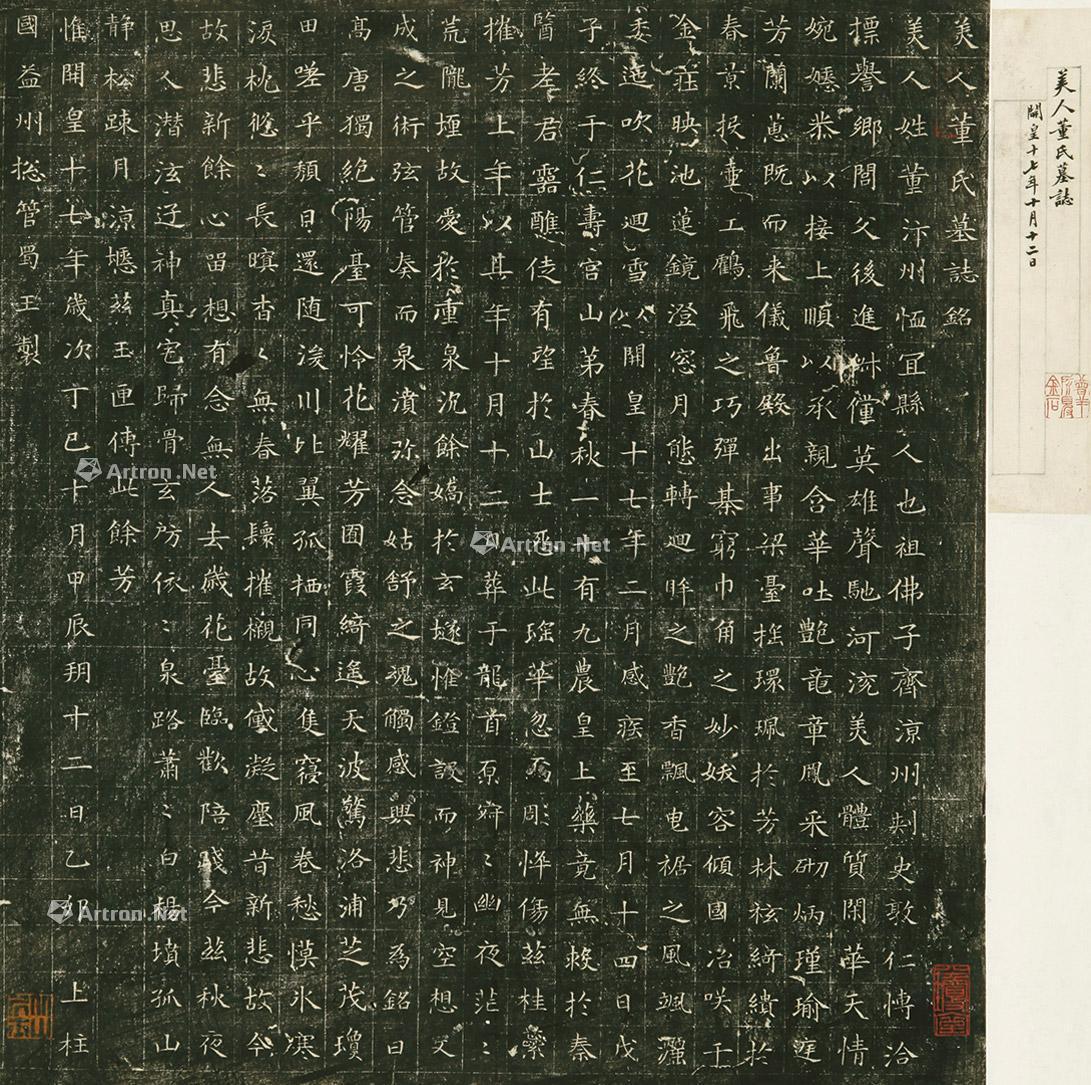 美人董氏墓誌
開皇十七年十月十二日
美人董氏墓誌銘
美人姓董汴州恤冝縣人也祖佛子齊涼州刾史敦仁愽洽
摽譽鄉閭父後進俶儻英雄聲馳河渷美人體質閑華天情
婉嫕恭以接上順以承親含華吐艷竜章鳳采砌炳瑾瑜庭
芳蘭蕙既而来儀魯殿出事梁臺摇環珮於芳林袨綺繢於
春景投壷工鶴飛之巧彈棊窮巾角之妙妖容傾國冶咲千
金莊映池蓮鏡澄窓月態轉迴眸之艷香飄曳裾之風颯灑
委迤吹花迴雪以開皇十七年二月感疾至七月十四日戊
子終于仁壽宫山第春秋一十有九農皇上藥竟無救於秦
醫老君靈醮徒有望於山士怨此瑶華忽焉彫悴傷茲桂蘂
摧芳上年以其年十月十二日葬于龍首原寂〻幽夜茫〻
荒隴埋故愛於重泉沉餘嬌於玄隧惟鐙設而神見空想文
成之術弦管奏而泉濆弥念姑舒之魂觸感興悲乃為銘曰
高唐獨絶陽臺可怜花耀芳囿霞綺遥天波驚洛浦芝茂瓊
田嗟乎頺日還随湲川比翼孤栖同心隻寢風卷愁慔氷寒
淚枕悠〻長暝杳〻無春落鬟摧櫬故黛凝塵昔新悲故今
故悲新餘心留想有念無人去歳花臺臨歡陪踐今茲秋夜
思人潜泫迂神真宅歸骨玄房依〻泉路蕭〻白楊墳孤山
静松踈月涼瘞茲玉匣傳此餘芳
惟開皇十七年歳次丁巳十月甲辰朔十二日乙夘 上柱
國益州揔管蜀王製
Artron.Net
Artron.Net
Artron.Net
Artron.Net